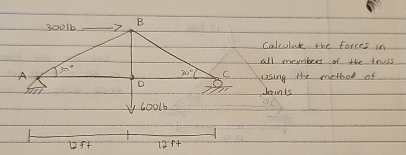 300lb
B
Calculate the forces in
all members of the truss
using the method of
Joints
A
30°
30°
C
D
600lb
12 ft
12 ft